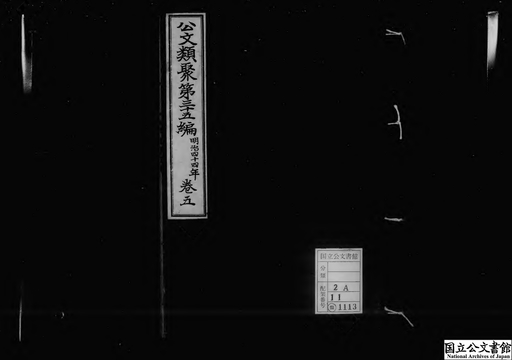 公文類聚第三十五編 明治四十四年 巻五
国立公文書館
分類
配架番号
2 A
11
1113
国立公文書館
National Archives of Japan